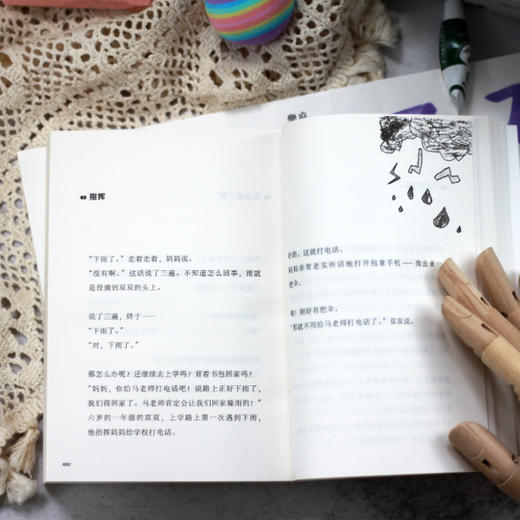 指挥
“下雨了。”走着走着，妈妈说。
“没有啊。”这话说了三遍。不知道怎么回事，雨就
是没滴到双双的头上。
说了三遍，终于——
“下雨了。”
“对，下雨了。”
那怎么办呢？还继续去上学吗？背着书包回家吗？
“妈妈，你给马老师打电话吧！说路上正好下雨了，
我们得回家了。马老师肯定会让我们回家躲雨的！”
六岁的一年级的双双，上学路上第一次遇到下雨，
他指挥妈妈给学校打电话。
682
好的。这就打电话。
妈妈非常老实听话地打开包拿手机——掏出来一
把伞。
！刚好有把伞。
“那就不用给马老师打电话了。”双双说。